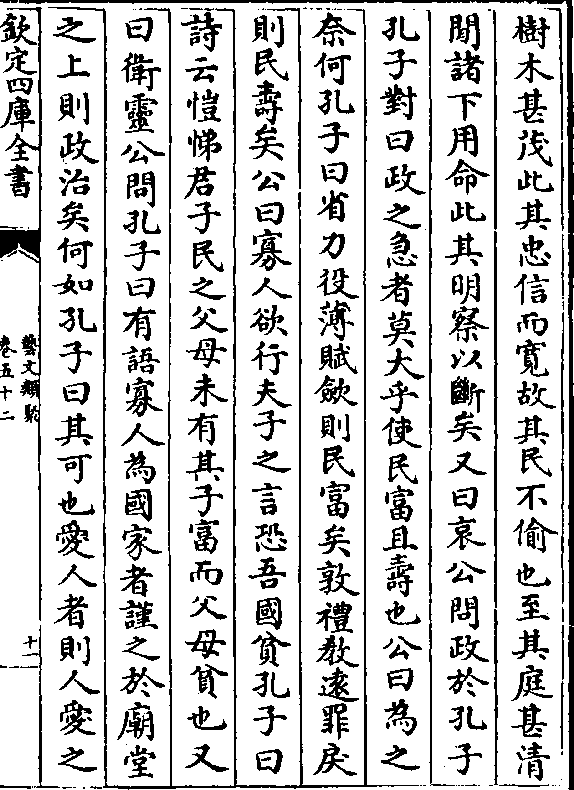 樹木甚茂此其忠信而寛故其民不偷也至其庭甚清
閒諸下用命此其明察以斷矣又曰哀公問政於孔子
孔子對曰政之急者莫大乎使民富且壽也公曰為之
奈何孔子曰省力役薄賦斂則民富矣敦禮教逺罪戾
則民壽矣公曰寡人欲行夫子之言恐吾國貧孔子曰
詩云愷悌君子民之父母未有其子富而父母貧也又
曰衛靈公問孔子曰有語寡人為國家者謹之於廟堂
之上則政治矣何如孔子曰其可也愛人者則人愛之
欽定四庫全書
藝文類聚
卷五十二
十一